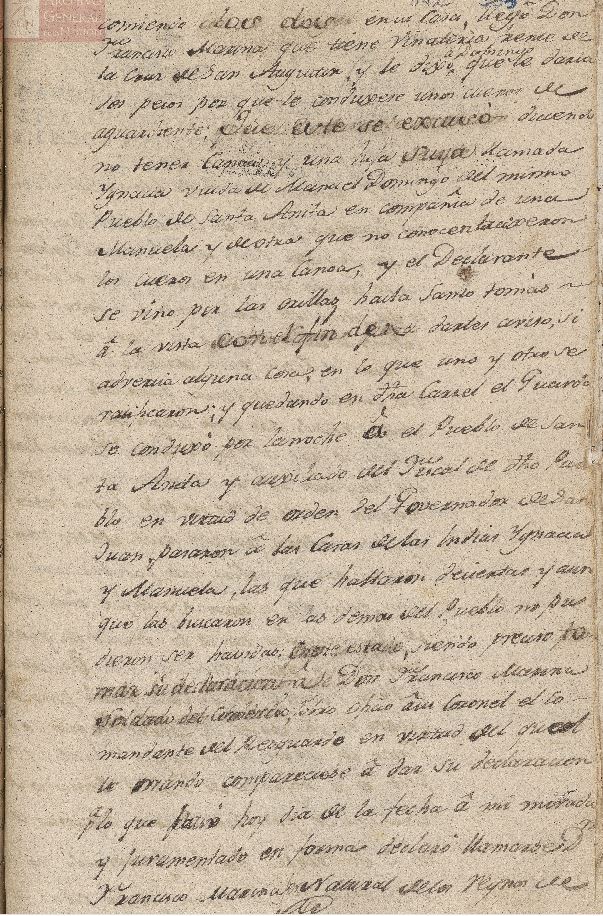 ARCHIVO
GENERAL
comiendo dos dos en su Casa, llegó Don
Francisco Marina que tiene Vinatería frente de
la Cruz de San Augustin, y le dijo á Domingo que le daria
dos pesos por que le condujese unos cueros de
aguardiente; que este se excusó diciendo
no tener Canoa, y una hija suya llamada
Ygnacia viuda de Manuel Domingo del mismo
Pueblo de Santa Anita en compañia de una
Manuela y de otra que no conoce
los cueros en una Canoa; y el Declarante
se vino por las orillas hasta Santo tomas
á la vista con el fin de darles aviso, si
advertia alguna cosa; en lo que uno y otro se
ratificaron; y quedando en dha Carcel el Guarda
se condujo por la noche á el Pueblo de San
ta Anita y auxiliado del Fiscal de dho Pue
blo en virtud de orden del Governador de San
Juan, pasaron á las Casas de las Indias Ygnacia
y Manuela, las que hallaron desiertas y aun
que las buscaron en las demas del Pueblo no pu
dieron ser havidas. En este estado, siendo preciso to
mar su declaracion á Don Francisco Marina
Soldado del Comercio, Coronel el Co
mandante del Resguardo en virtud del qual
le mando compareciese á dar su declaracion
lo que hoy dia de la fecha á mi morada
y juramentado en forma declaró llamarse Dn
Francisco Marina Natural de los Reynos de